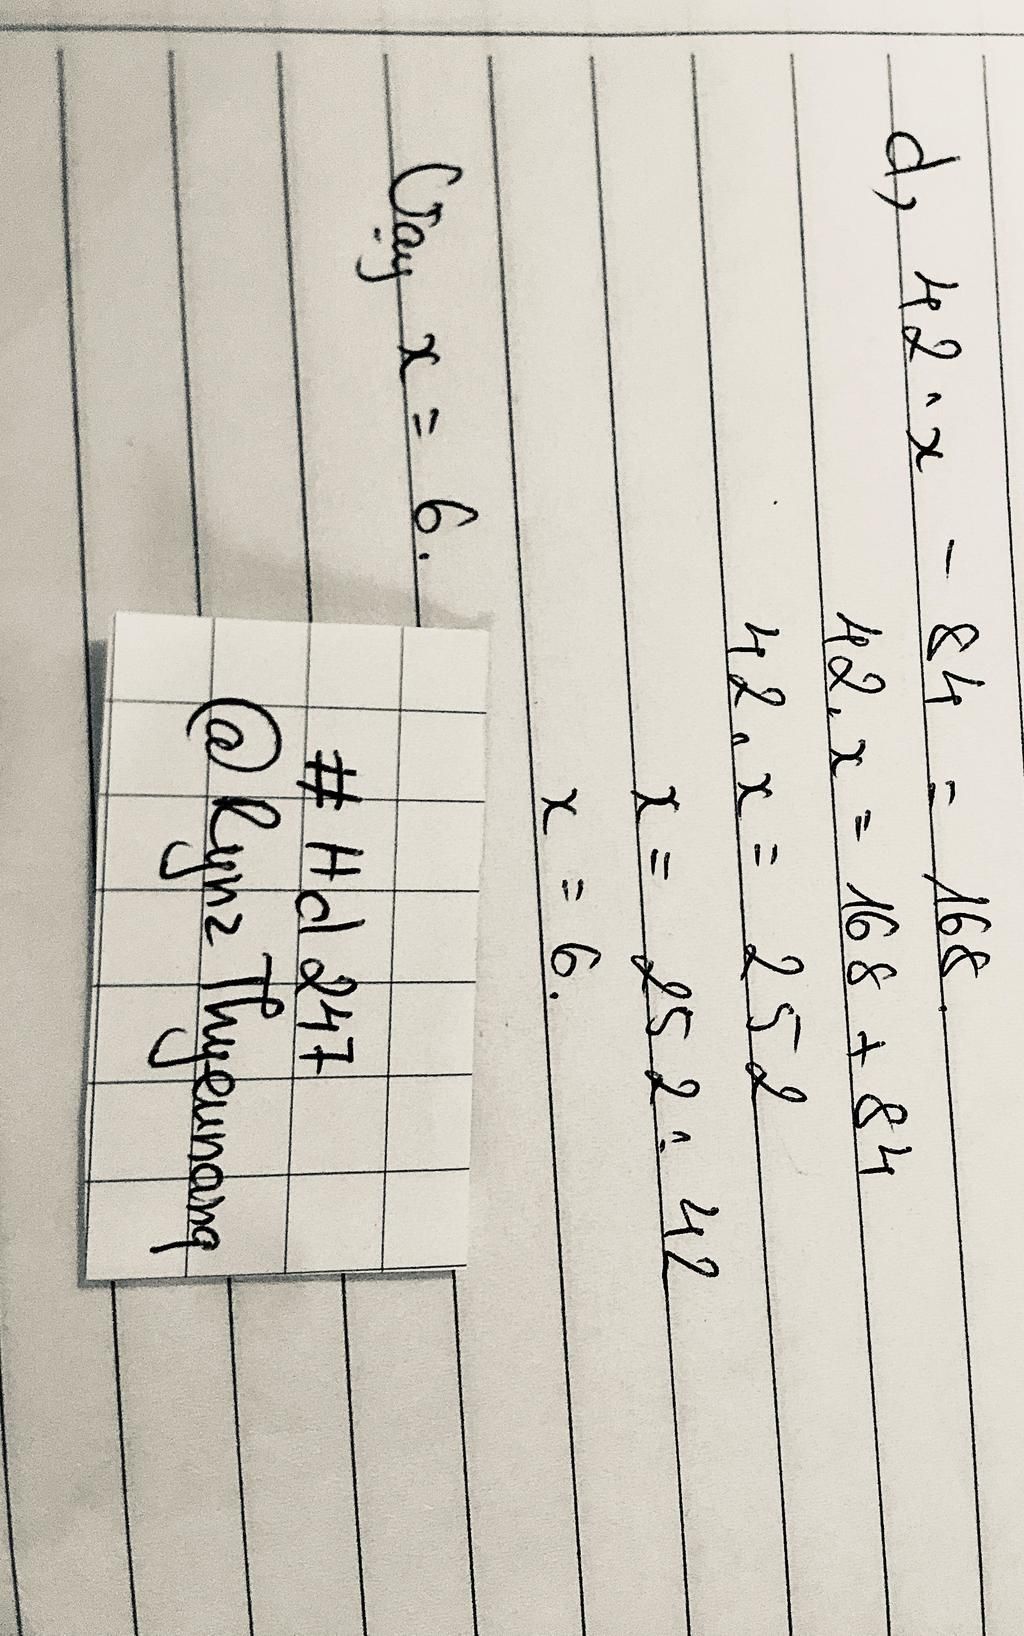 d, 42 . x - 84 = 168.
42 . x = 168 + 84
42 . x = 252
x = 252 : 42
x = 6.
Vậy x = 6.
# Hd 247
@ Rynz Thyeunanq